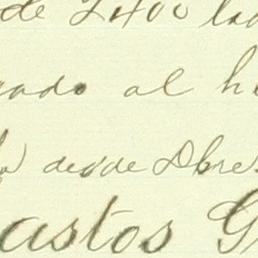 de 2400 lad
gado al h
desde Dbre
astos G